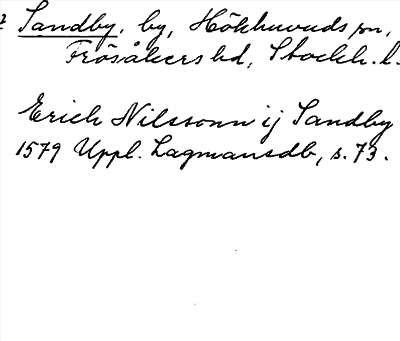 Sandby. by, Hökhuvuds sn,
Frösåkers hd, Stockh. l.
Erich Nilssonn ij Sandby
1579 Uppl. Lagmansdb, s. 73.